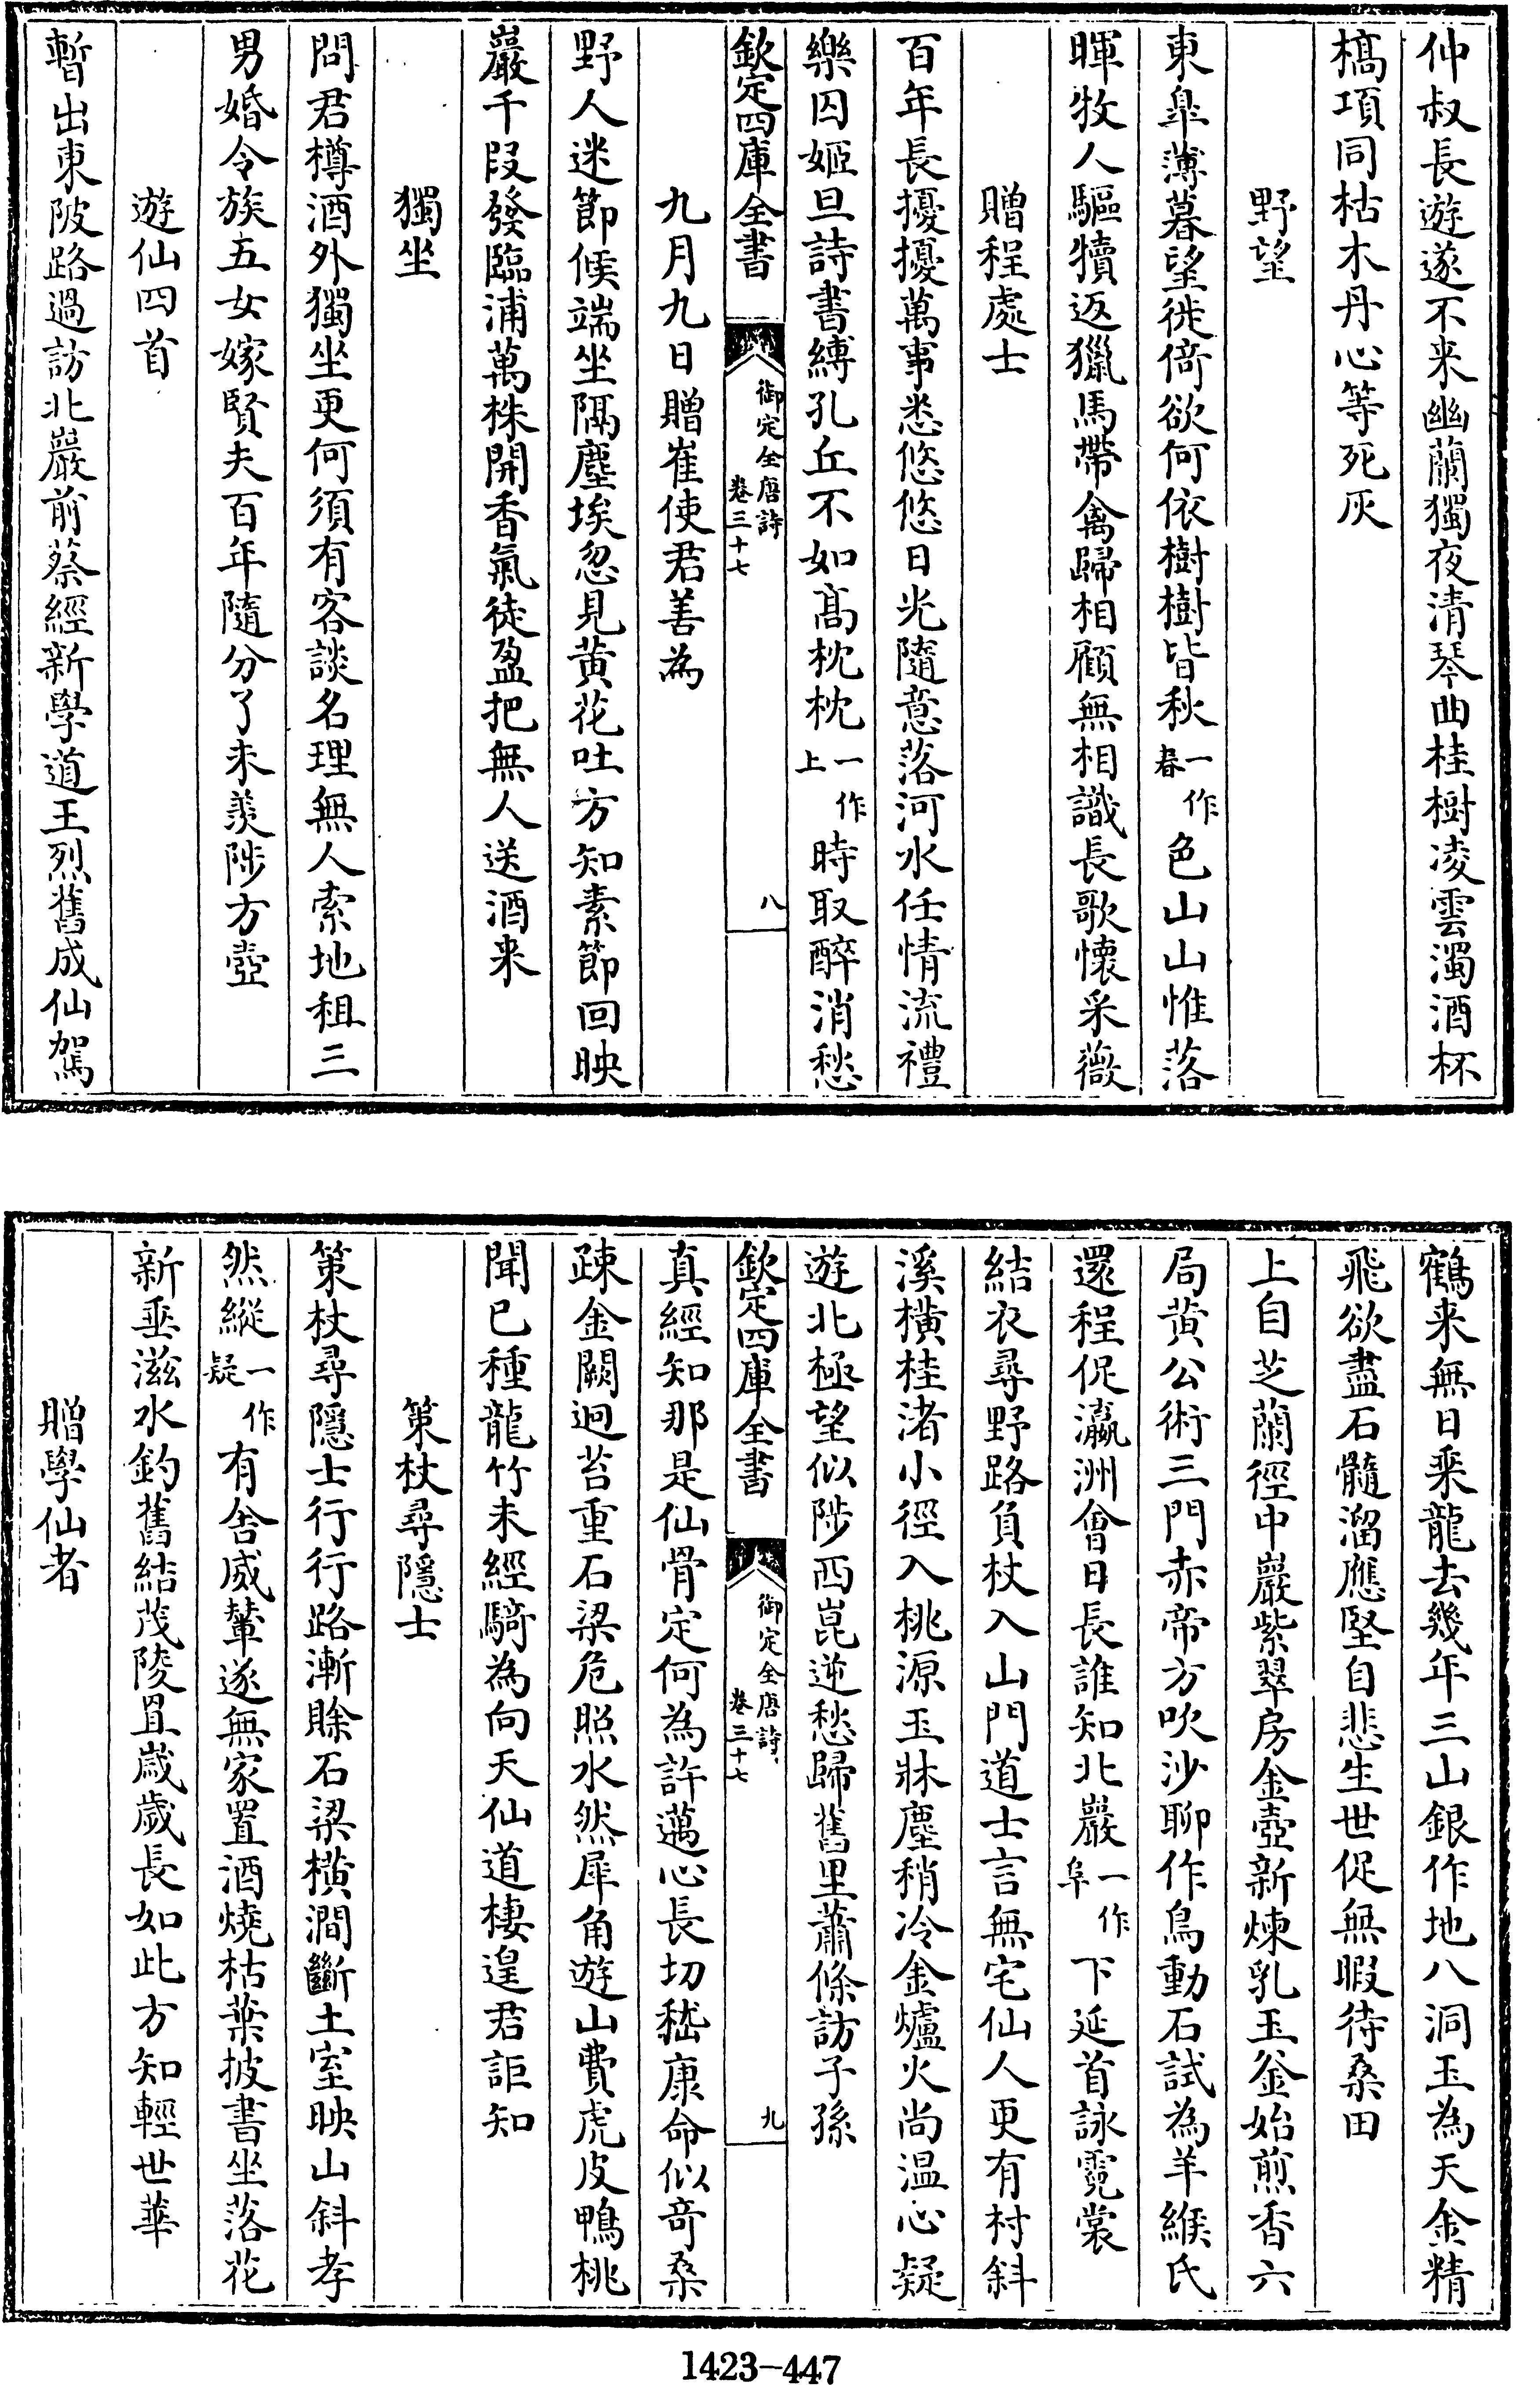 仲叔長遊遂不来幽蘭獨夜清琴曲桂樹凌雲濁酒杯
槁項同枯木丹心等死灰
野望
東臯薄暮望徙倚欲何依樹樹皆秋一作春色山山惟落
暉牧人驅犢返獵馬帶禽歸相顧無相識長歌懷采薇
贈程處士
百年長擾擾萬事悉悠悠日光隨意落河水任情流禮
樂囚姬旦詩書縛孔丘不如髙枕枕一作上時取醉消愁
欽定四庫全書
御定全唐詩
卷三十七
八
九月九日贈崔使君善為
野人迷節候端坐隔塵埃忽見黄花吐方知素節回映
巖千段發臨浦萬株開香氣徒盈把無人送酒来
獨坐
問君樽酒外獨坐更何須有客談名理無人索地租三
男婚令族五女嫁賢夫百年隨分了未羨陟方壺
遊仙四首
暫出東陂路過訪北巖前蔡經新學道王烈舊成仙駕
鶴来無日乘龍去幾年三山銀作地八洞玉為天金精
飛欲盡石髓溜應堅自悲生世促無暇待桑田
上自芝蘭徑中巖紫翠房金壺新煉乳玉釜始煎香六
局黄公術三門赤帝方吹沙聊作鳥動石試為羊緱氏
還程促瀛洲會日長誰知北巖一作阜下延首詠霓裳
結衣尋野路負杖入山門道士言無宅仙人更有村斜
溪横桂渚小徑入桃源玉牀塵稍冷金爐火尚温心疑
遊北極望似陟西崑逆愁歸舊里蕭條訪子孫
欽定四庫全書
御定全唐詩
卷三十七
九
真經知那是仙骨定何為許邁心長切嵇康命似奇桑
疎金闕迥苔重石梁危照水然犀角遊山費虎皮鴨桃
聞已種龍竹未經騎為向天仙道棲遑君詎知
策杖尋隱士
策杖尋隱士行行路漸賒石梁横澗斷土室映山斜孝
然縱一作疑有舍威輦遂無家置酒燒枯葉披書坐落花
新垂滋水釣舊結茂陵罝歲歲長如此方知輕世華
贈學仙者
1423-447